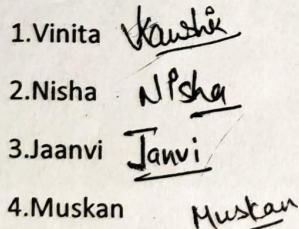 1.Vinita VKaushik
2.Nisha Nisha
3.Jaanvi Janvi
4.Muskan Muskan